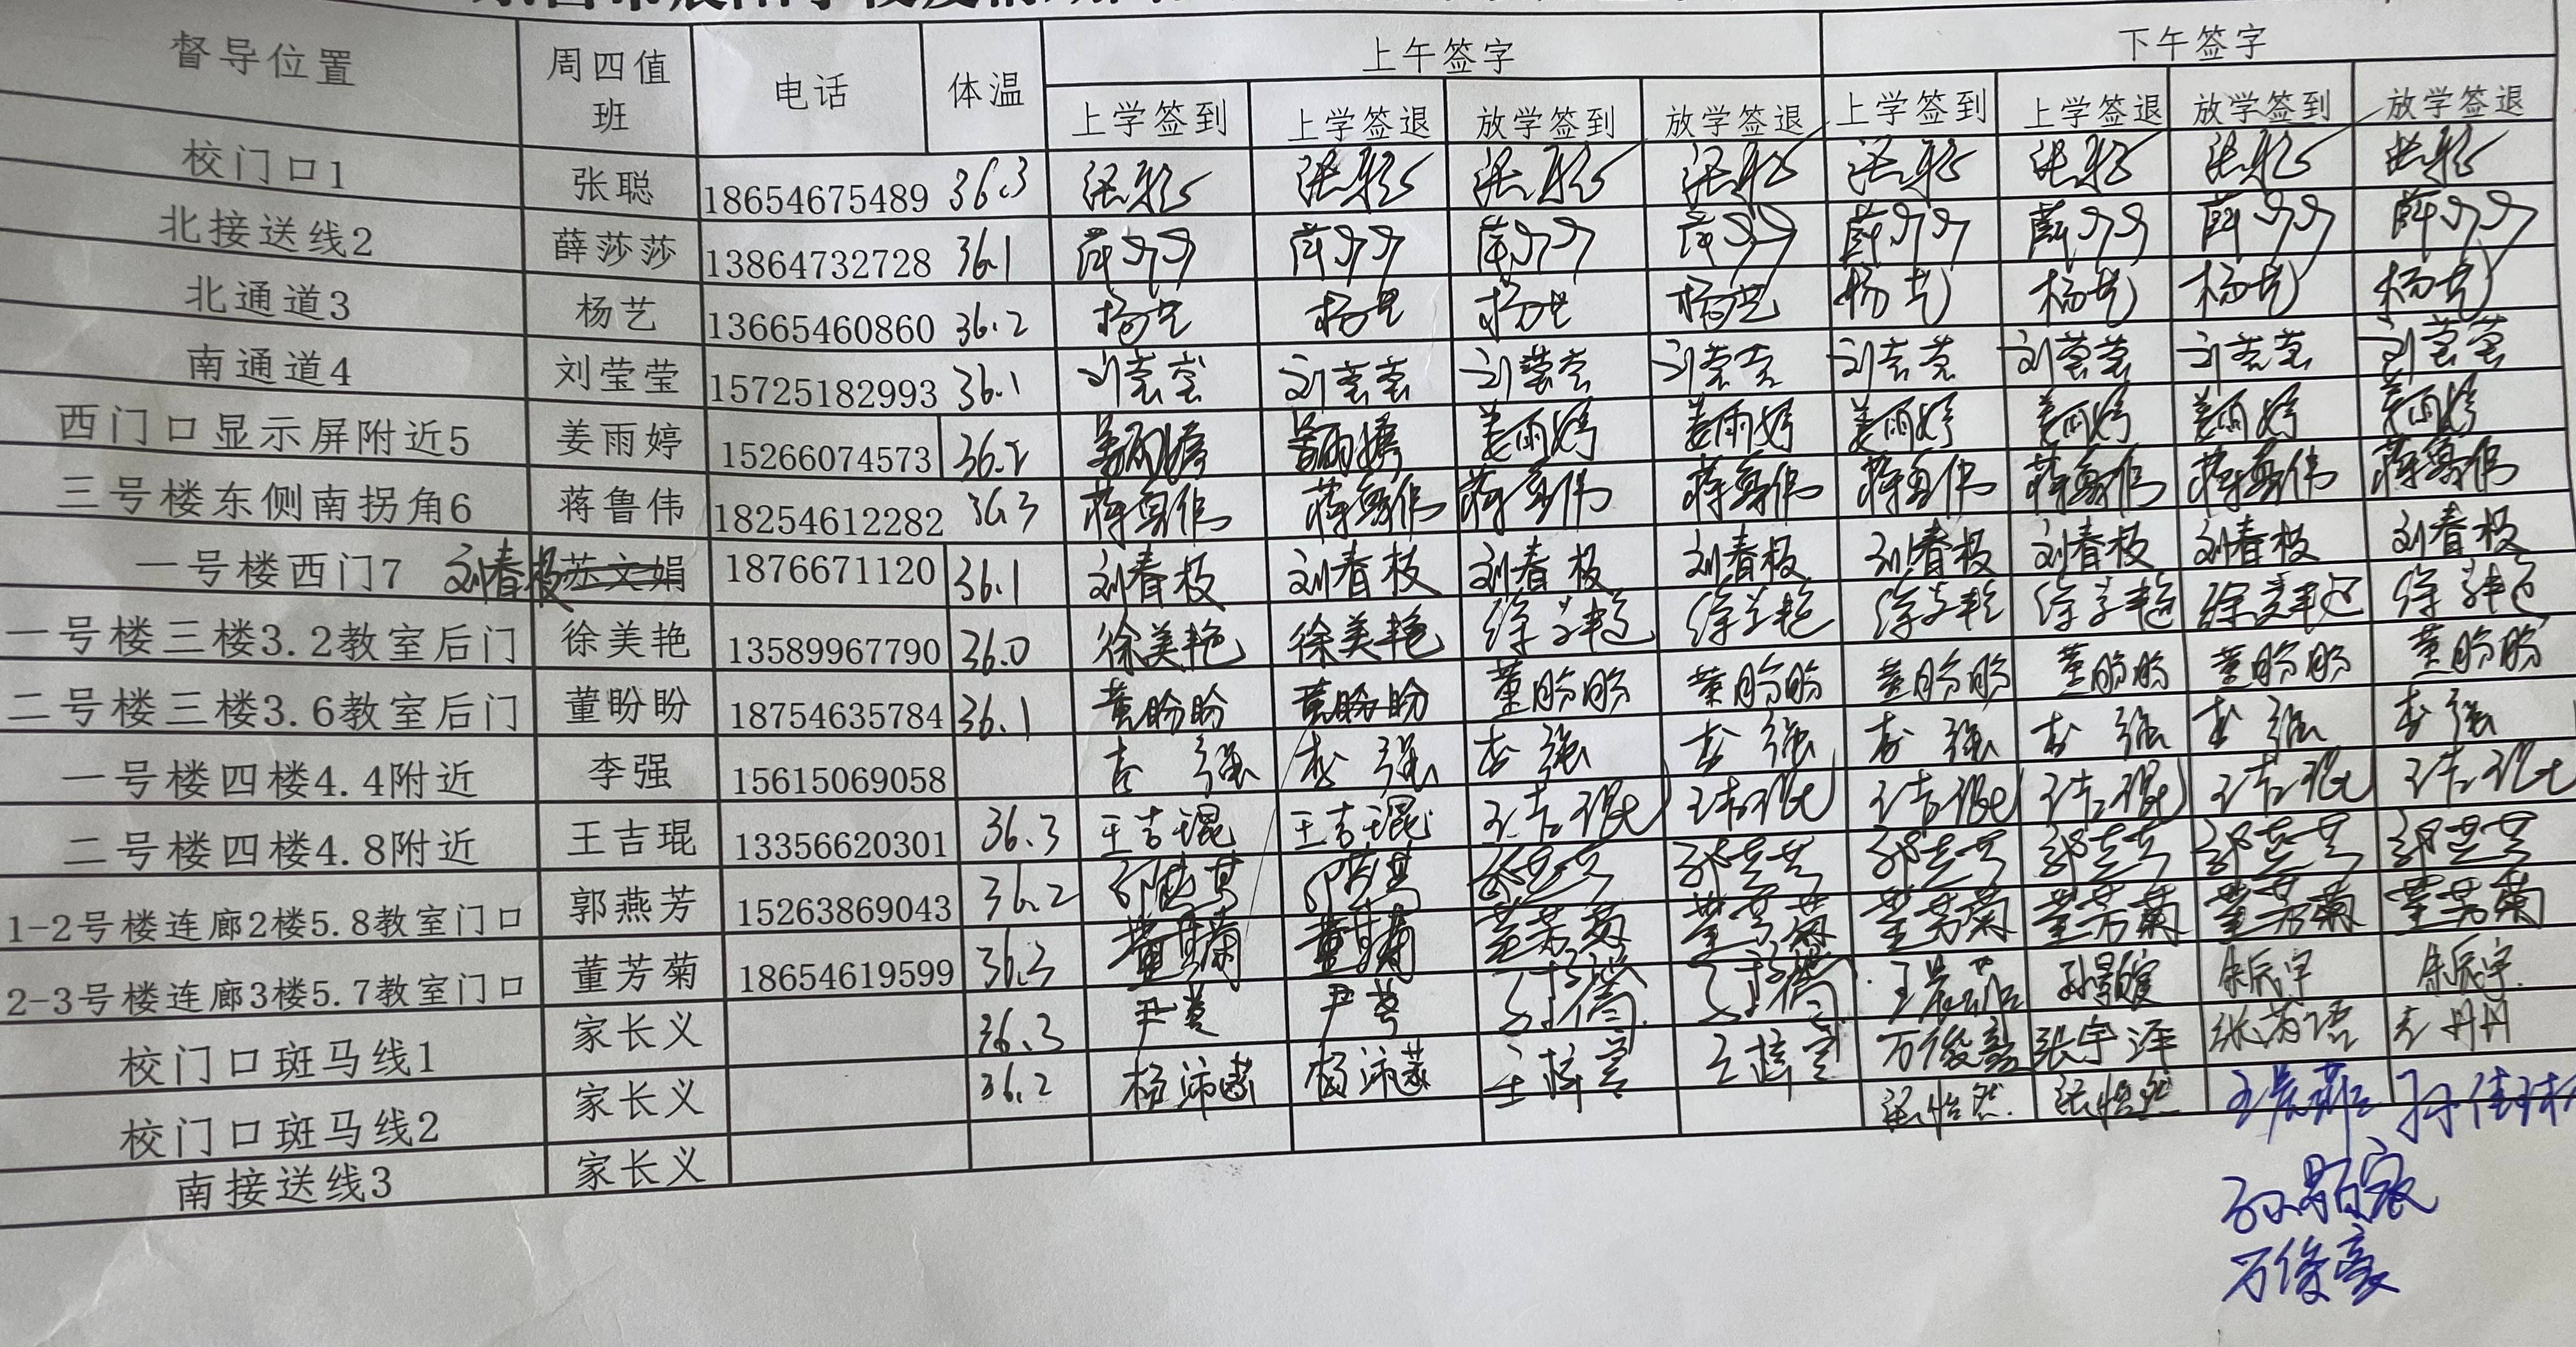 督导位置 周四值班 电话 体温 上午签字 下午签字
上学签到 上学签退 放学签到 放学签退 上学签到 上学签退 放学签到 放学签退
校门口1 张聪 18654675489 36.3 张聪 张聪 张聪 张聪 张聪 张聪 张聪 张聪
北接送线2 薛莎莎 13864732728 36.1 薛莎莎 薛莎莎 薛莎莎 薛莎莎 薛莎莎 薛莎莎 薛莎莎 薛莎莎
北通道3 杨艺 13665460860 36.2 杨艺 杨艺 杨艺 杨艺 杨艺 杨艺 杨艺 杨艺
南通道4 刘莹莹 15725182993 36.1 刘莹莹 刘莹莹 刘莹莹 刘莹莹 刘莹莹 刘莹莹 刘莹莹 刘莹莹
西门口显示屏附近5 姜雨婷 15266074573 36.2 姜雨婷 姜雨婷 姜雨婷 姜雨婷 姜雨婷 姜雨婷 姜雨婷 姜雨婷
三号楼东侧南拐角6 蒋鲁伟 18254612282 36.3 蒋鲁伟 蒋鲁伟 蒋鲁伟 蒋鲁伟 蒋鲁伟 蒋鲁伟 蒋鲁伟 蒋鲁伟
一号楼西门7 刘春枝 苏文娟 1876671120 36.1 刘春枝 刘春枝 刘春枝 刘春枝 刘春枝 刘春枝 刘春枝 刘春枝
一号楼三楼3.2教室后门 徐美艳 13589967790 36.0 徐美艳 徐美艳 徐美艳 徐美艳 徐美艳 徐美艳 徐美艳 徐美艳
二号楼三楼3.6教室后门 董盼盼 18754635784 36.1 董盼盼 董盼盼 董盼盼 董盼盼 董盼盼 董盼盼 董盼盼 董盼盼
一号楼四楼4.4附近 李强 15615069058 李强 李强 李强 李强 李强 李强 李强 李强
二号楼四楼4.8附近 王吉琨 13356620301 36.3 王吉琨 王吉琨 王吉琨 王吉琨 王吉琨 王吉琨 王吉琨 王吉琨
1-2号楼连廊2楼5.8教室门口 郭燕芳 15263869043 36.2 郭燕芳 郭燕芳 郭燕芳 郭燕芳 郭燕芳 郭燕芳 郭燕芳 郭燕芳
2-3号楼连廊3楼5.7教室门口 董芳菊 18654619599 36.3 董芳菊 董芳菊 董芳菊 董芳菊 董芳菊 董芳菊 董芳菊 董芳菊
校门口斑马线1 家长义 36.3 朱辰宇 朱辰宇
校门口斑马线2 家长义 36.2 王梓萱 王梓萱 万俊豪 张宇泽
南接送线3 家长义 张怡然 张怡然
万俊豪